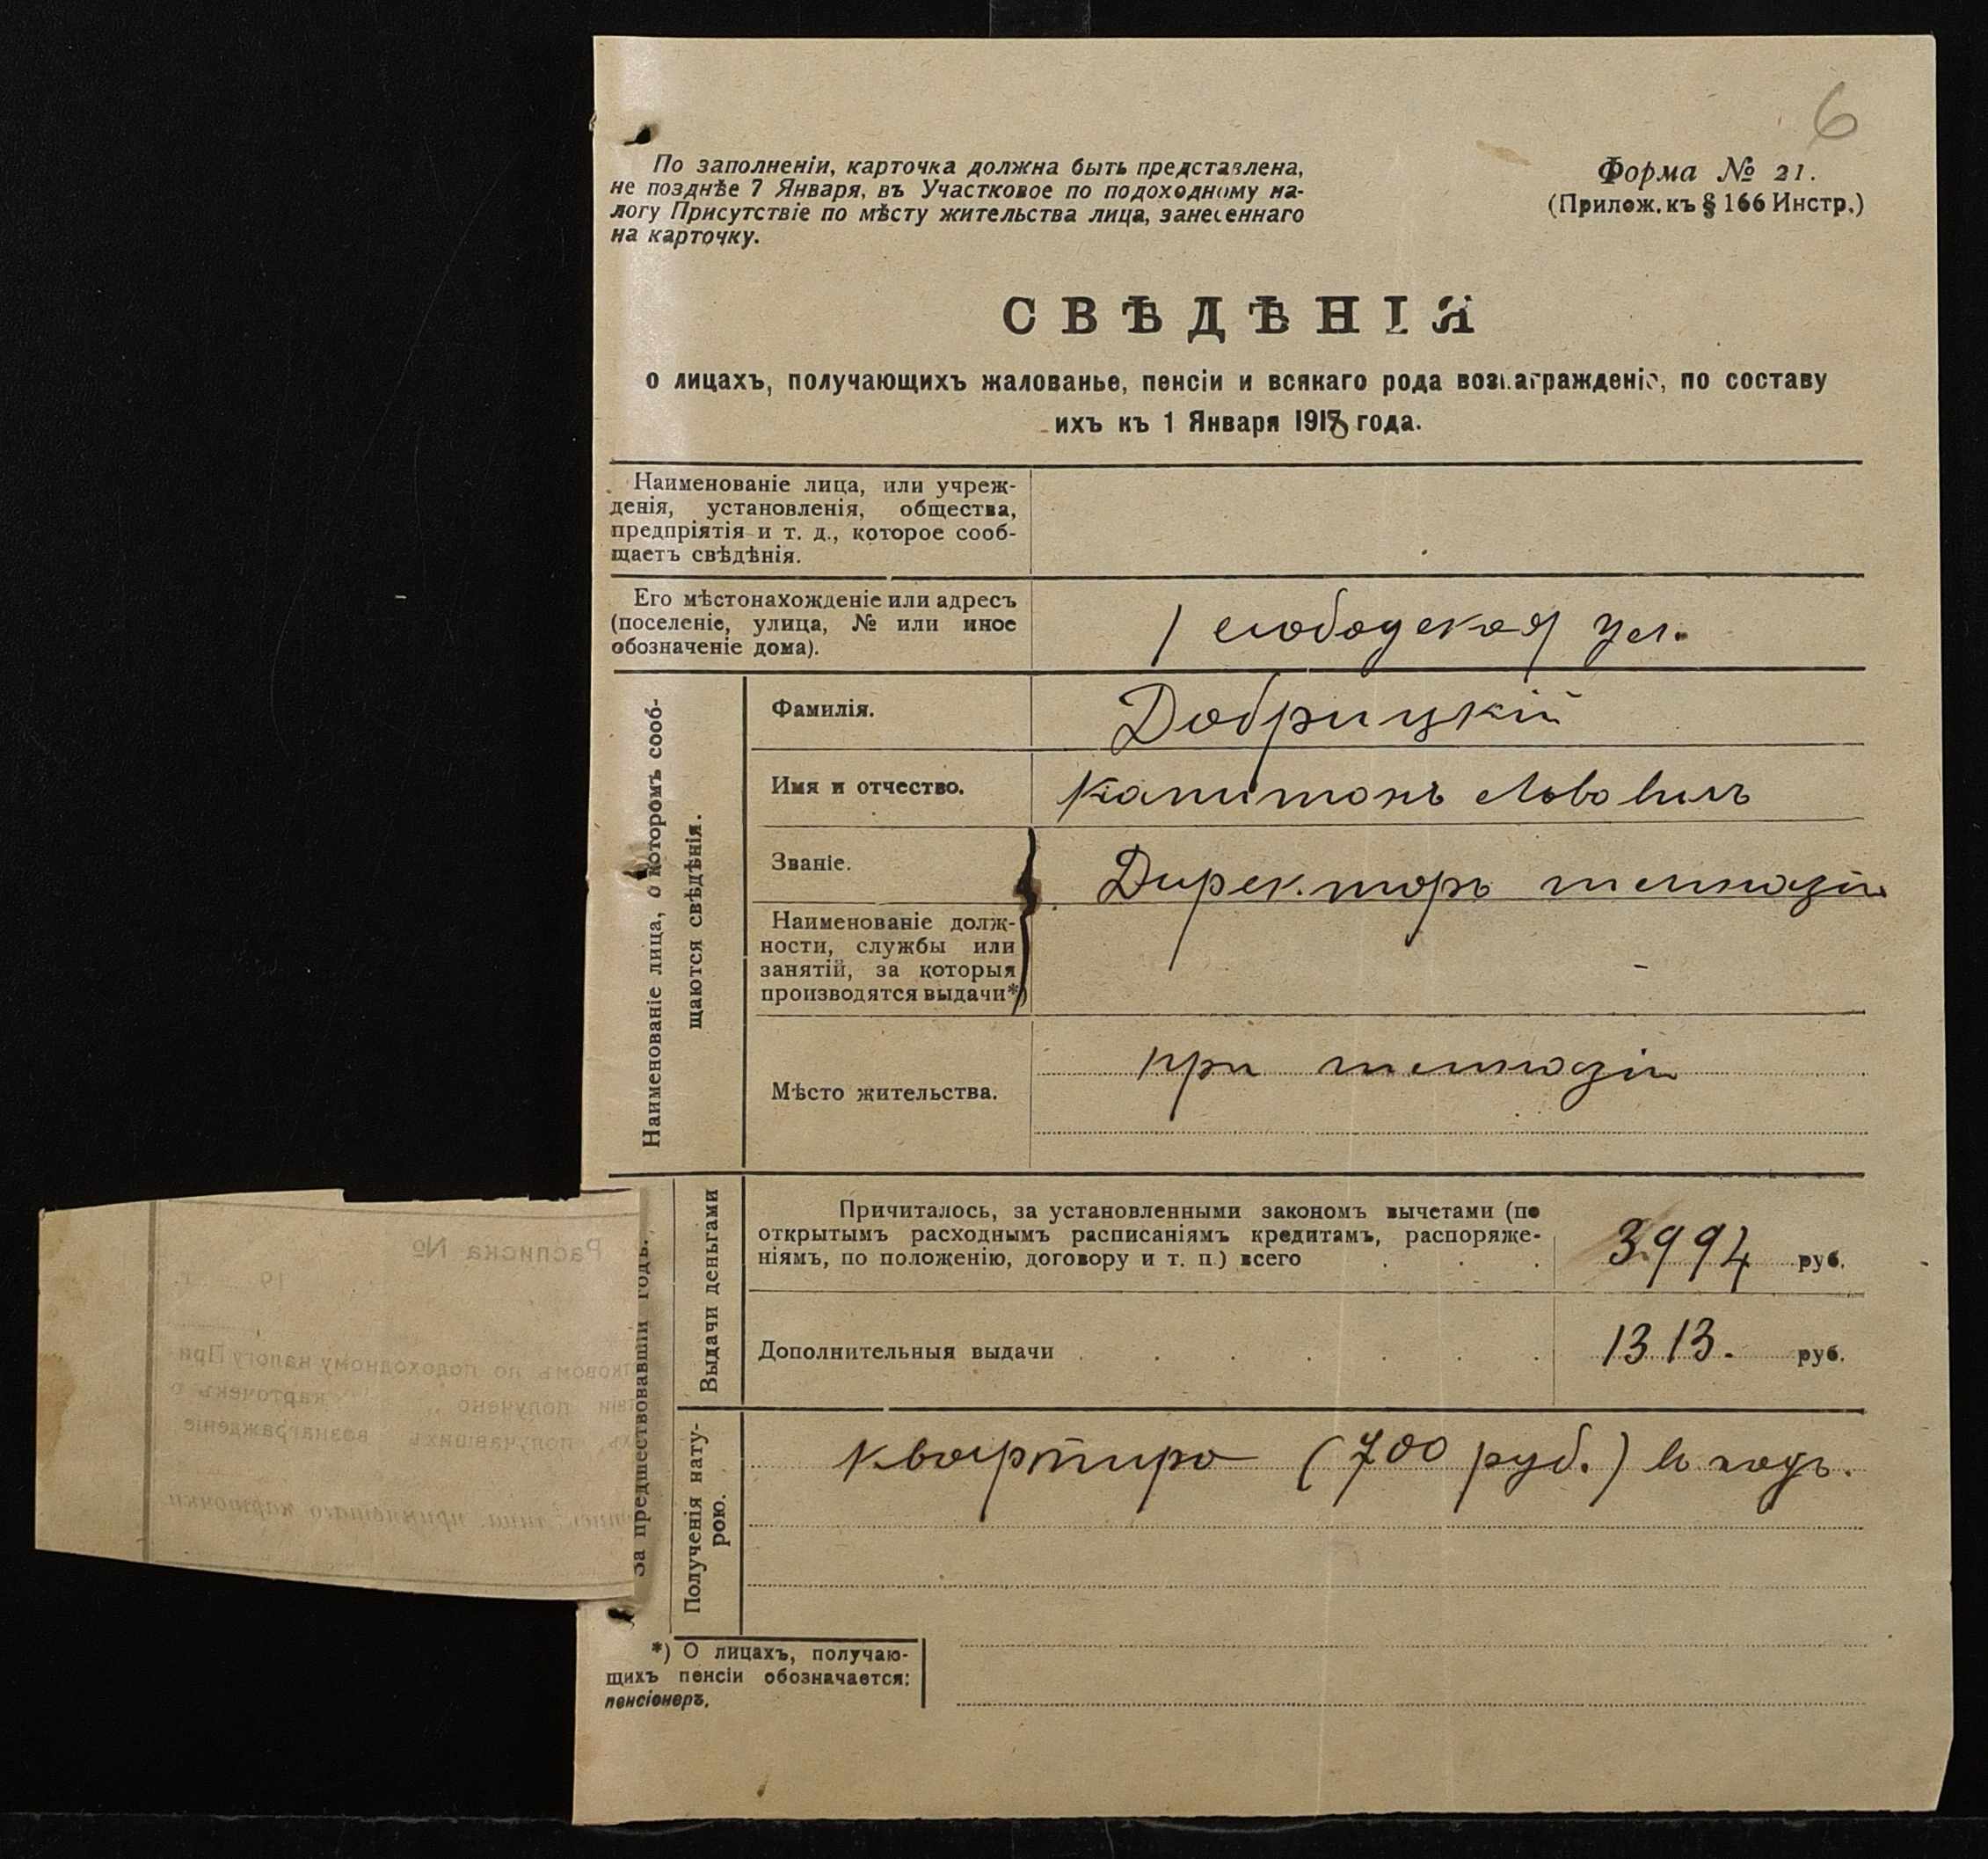 6
По заполненіи, карточка должна быть представлена,
не позднѣе 7 Января, въ Участковое по подоходному на-
логу Присутствіе по мѣсту жительства лица, занесеннаго
на карточку.
Форма № 21.
(Прилож. къ § 166 Инстр.)
СВѢДѢНІЯ
о лицахъ, получающихъ жалованье, пенсіи и всякаго рода вознагражденіе, по составу
ихъ къ 1 Января 1918 года.
Наименованіе лица, или учреж-
денія, установленія, общества,
предпріятія и т. д., которое сооб-
щаетъ свѣдѣнія.
Его мѣстонахожденіе или адресъ
(поселеніе, улица, № или иное
обозначеніе дома).
1 слободская ул.
Наименованіе лица, о которомъ сооб-
щаются свѣдѣнія.
Фамилія.
Добрицкій
Имя и отчество.
Капитонъ Львовичъ
Званіе.
Директоръ гимназіи
Наименованіе долж-
ности, службы или
занятій, за которыя
производятся выдачи*)
Мѣсто жительства.
при гимназіи
За предшествовавшій годъ.
Выдачи деньгами
Причиталось, за установленными закономъ вычетами (по
открытымъ расходнымъ расписаніямъ кредитамъ, распоряже-
ніямъ, по положенію, договору и т. п.) всего
3994 руб.
Дополнительныя выдачи
1313. руб.
Полученія нату-
рою.
квартира (700 руб.) въ годъ.
*) О лицахъ, получаю-
щихъ пенсіи обозначается:
пенсіонеръ.
Расписка №
19 г.
тковомъ по подоходному налогу При-
ствіи получено „ карточекъ о
хъ, получавшихъ вознагражденіе
принявшаго карточки